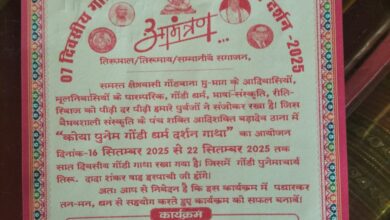 07 दिवसीय गों
दर्शन -2025
आमंत्रण...
तिरुमाल/तिरुमाय/सम्मानीय सगाजन,
समस्त क्षेत्रवासी गोंडवाना भू-भाग के आदिवासियों,
मूलनिवासियों के पारम्परिक, गोंडी धर्म, भाषा-संस्कृति, रीति-
रिवाज को पीढ़ी दर पीढ़ी हमारे पुर्वजों ने संजोकर रखा है। जिस
वैभवशाली संस्कृति के पंच शक्ति आदिशक्ति बड़ादेव ठाना में
"कोया पुनेम गोंडी धर्म दर्शन गाथा" का आयोजन
दिनांक-16 सितम्बर 2025 से 22 सितम्बर 2025 तक
सात दिवसीय गोंडी गाथा रखा गया है। जिसमें गोंडी पुनेमाचार्य
तिरु. दादा शंकर शाह इरपाची जी होंगे।
अतः आप से निवेदन है कि इस कार्यक्रम में पधारकर
तन-मन, धन से सहयोग करते हुए कार्यक्रम को सफल बनाबें।
कार्यक्रम